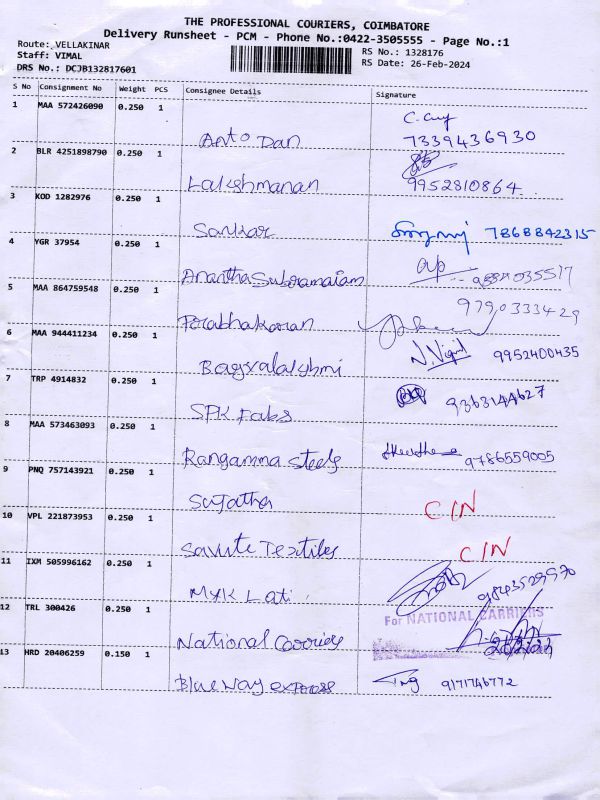 THE PROFESSIONAL COURIERS, COIMBATORE
Delivery Runsheet - PCM - Phone No.:0422-3505555 - Page No.:1
Route: VELLAKINAR
Staff: VIMAL
DRS No.: DCJB132817601
RS No.: 1328176
RS Date: 26-Feb-2024
S No Consignment No Weight PCS Consignee Details Signature
1 MAA 572426090 0.250 1
Anto Dan 7339436930
2 BLR 4251898790 0.250 1
Lakshmanan 9952810864
3 KOD 1282976 0.250 1
Sankar 7868842315
4 YGR 37954 0.250 1
Anantha Subramaiam
5 MAA 864759548 0.250 1
Prabhakaran 9790333429
6 MAA 944411234 0.250 1
N.Vignl 9952400435
7 TRP 4914832 0.250 1
SPK Fabs 9363144627
8 MAA 573463093 0.250 1
Rangamma Steels 9786559005
9 PNQ 757143921 0.250 1
Sujatha C/N
10 VPL 221873953 0.250 1
Savite Textiles C/N
11 IXM 505996162 0.250 1
12 TRL 300426 0.250 1
For NATIONAL CARRIERS
National Carriers
13 HRD 20406259 0.150 1
Blue way express 9171746772